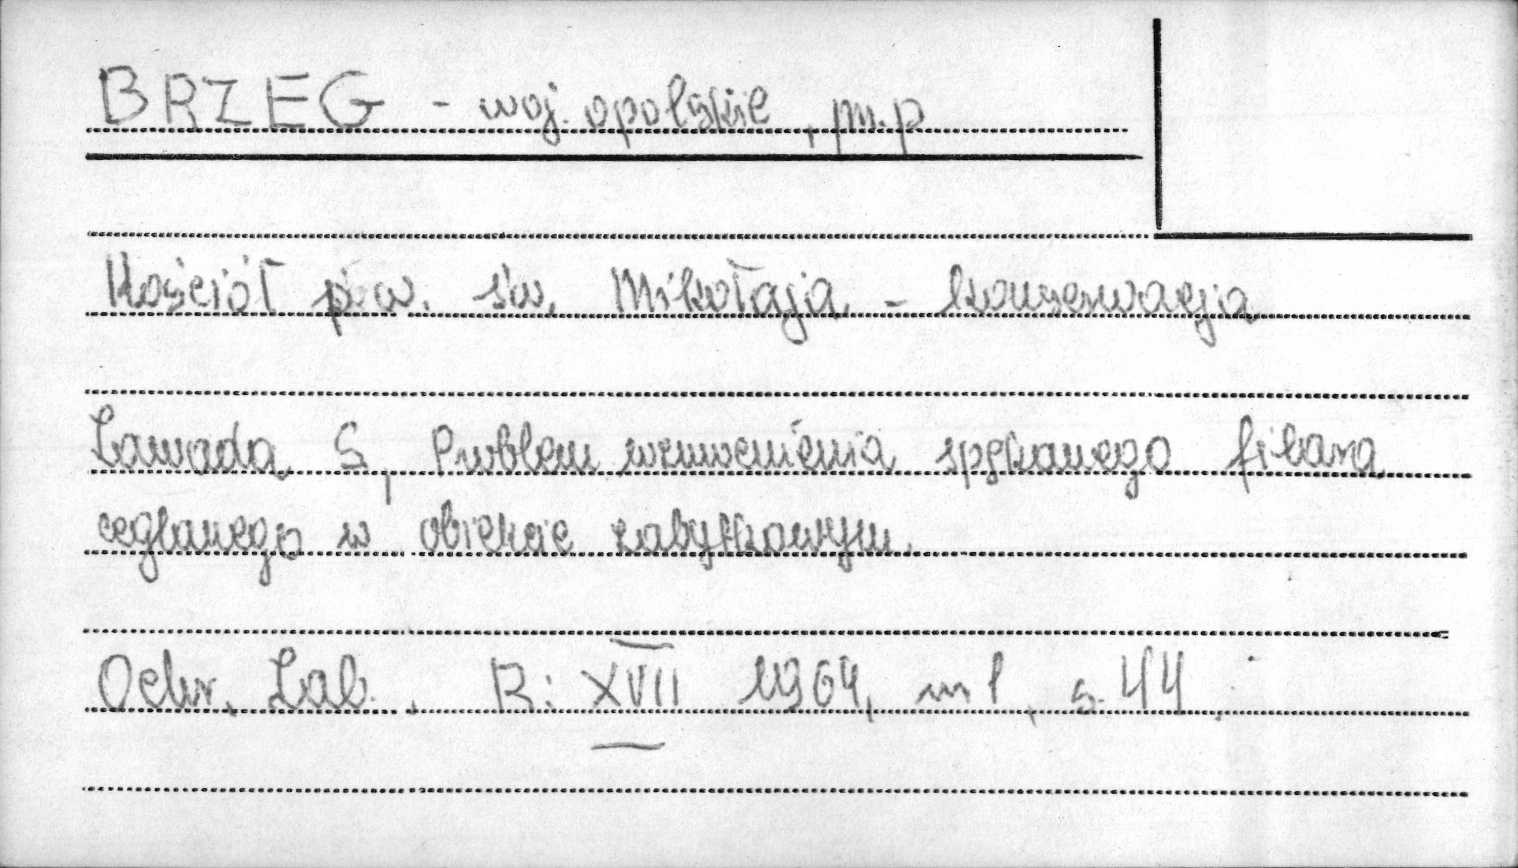 BRZEG - woj. opolskie, m.p
Kościół p.w. św. Mikołaja - konserwacja
Zawada S, Problem wzmocnienia spękanego filara
ceglanego w obiekcie zabytkowym.
Ochr. Zab. R: XVII 1964, nr 1, s. 44.